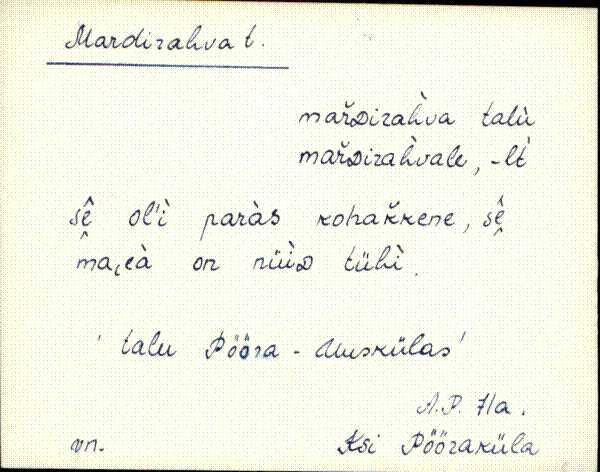 Mardirahva t.
mar̆Dirah̀va talù
mar̆Dirah̀vale, -lt̀
sê ol'ì paràs kohak̆kene, sê
ma,eà on nüìD tühì.
' talu Pööra - Uuskülas '
A.P. 71a.
vn. Ksi Pööraküla